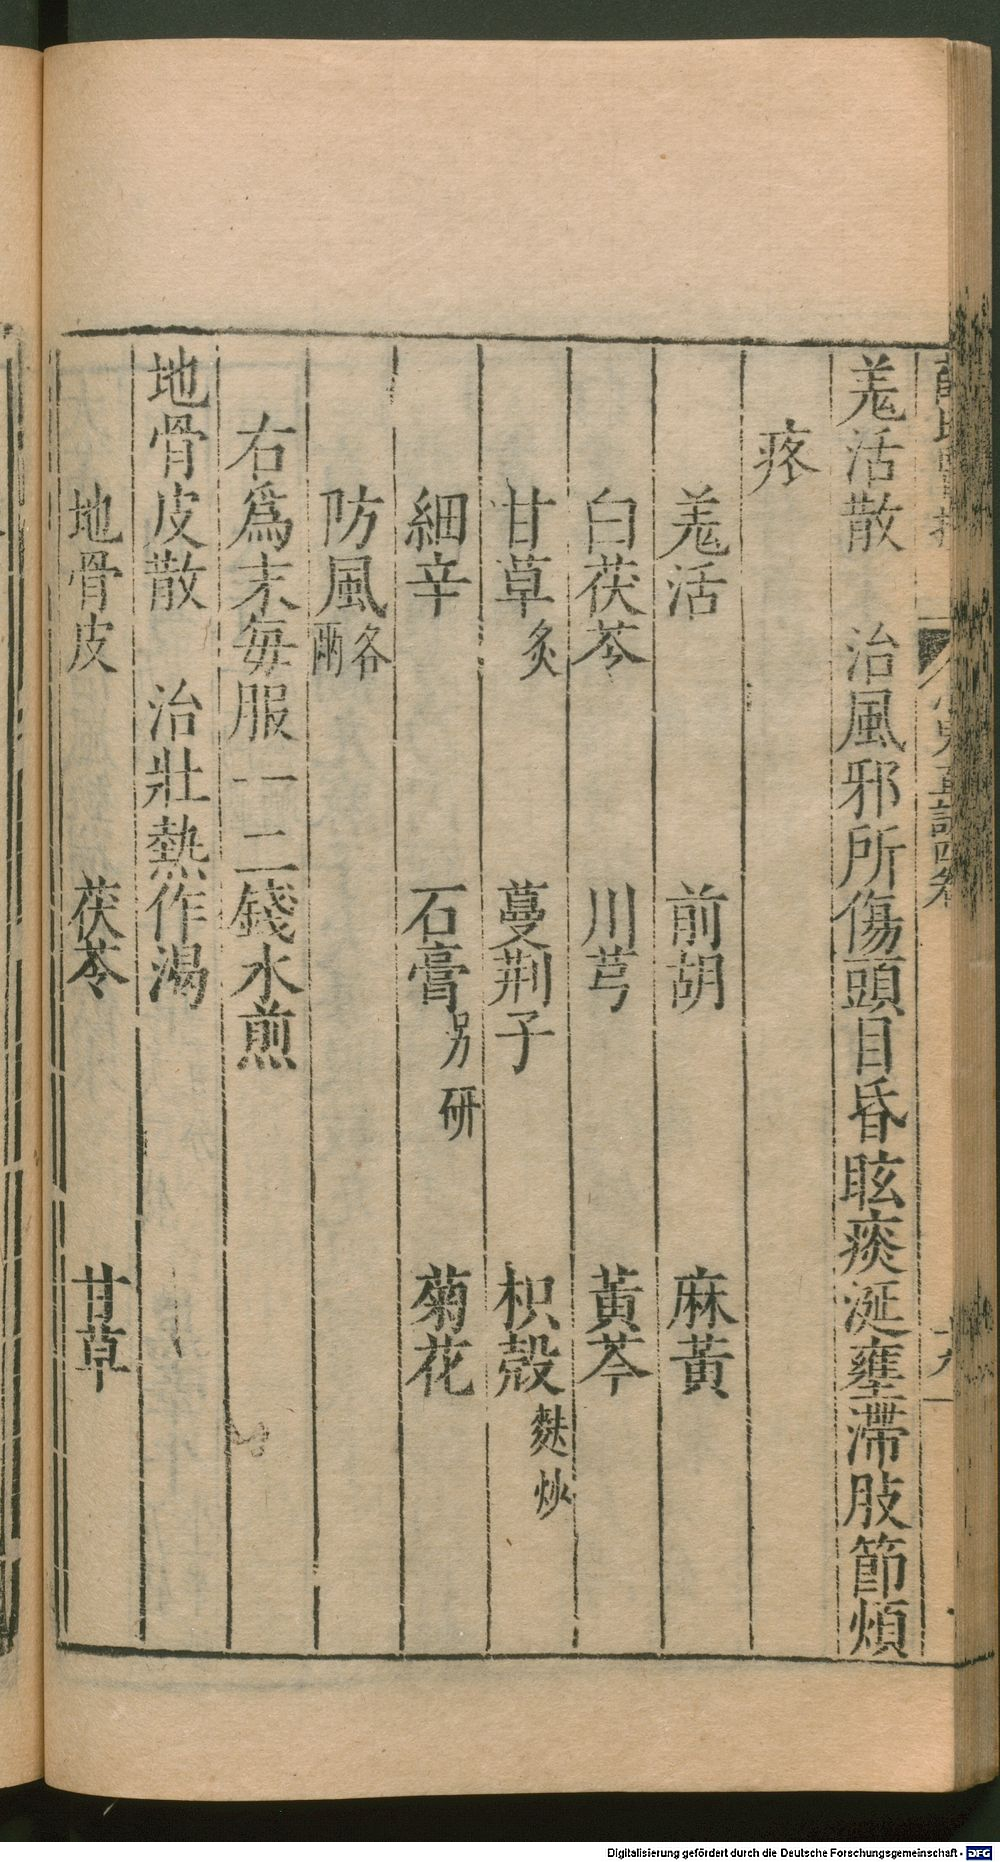 羗活散　治風邪所傷頭目昏眩痰涎壅滯肢節煩
疼
羗活　前胡　麻黃
白茯苓　川芎　黃芩
甘草炙　蔓荆子　枳殻麩炒
細辛　石膏另研　菊花
防風各兩
右爲末毎服一二錢水煎
地骨皮散　治壯熱作渴
地骨皮　茯苓　甘草
Digitalisierung gefördert durch die Deutsche Forschungsgemeinschaft - DFG